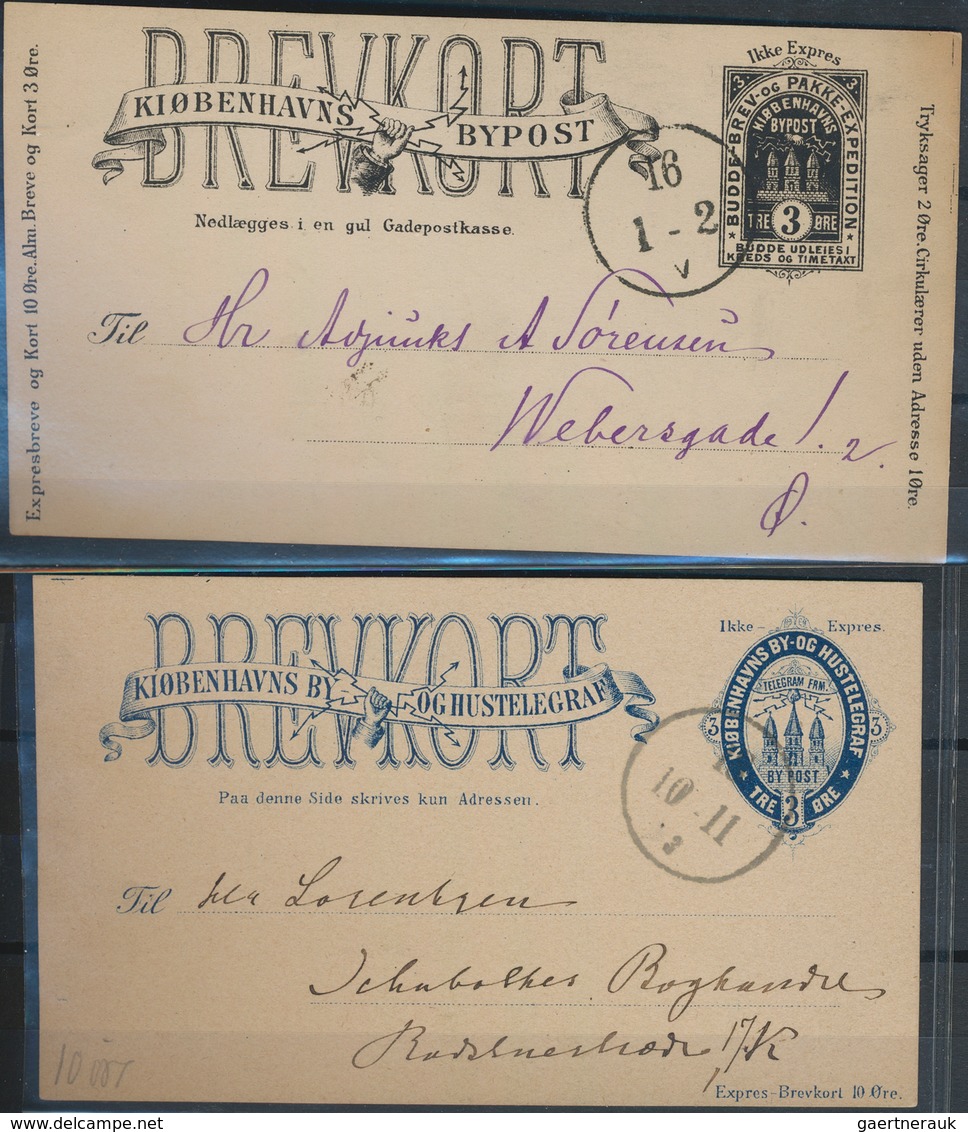 BREVKORT
KIØBENHAVNS BYPOST
Nedlægges i en gul Gadepostkasse.
Ikke Expres
3 3
BUDDE-BREV-OG PAKKE-EXPEDITION
KIØBENHAVNS
BYPOST
TRE 3 ØRE
BUDDE UDLEIES I
KREDS OG TIMETAXT
16
1 - 2
V
Expresbreve og Kort 10 Øre. Alm. Breve og Kort 3 Øre.
Tryksager 2 Øre. Cirkulærer uden Adresse 1 Øre.
Til Hr Adjunks A Sørensen
Webersgade 1. 2.
Ø.
BREVKORT
KIØBENHAVNS BY OG HUSTELEGRAF
Paa denne Side skrives kun Adressen.
Ikke - Expres.
KIØBENHAVNS BY-OG HUSTELEGRAF
TELEGRAM FRM.
3 3
BY POST
TRE 3 ØRE
10 - 11
3
Til
Boghandel
17 K
10 ør
Expres-Brevkort 10 Øre.
gaertnerauk